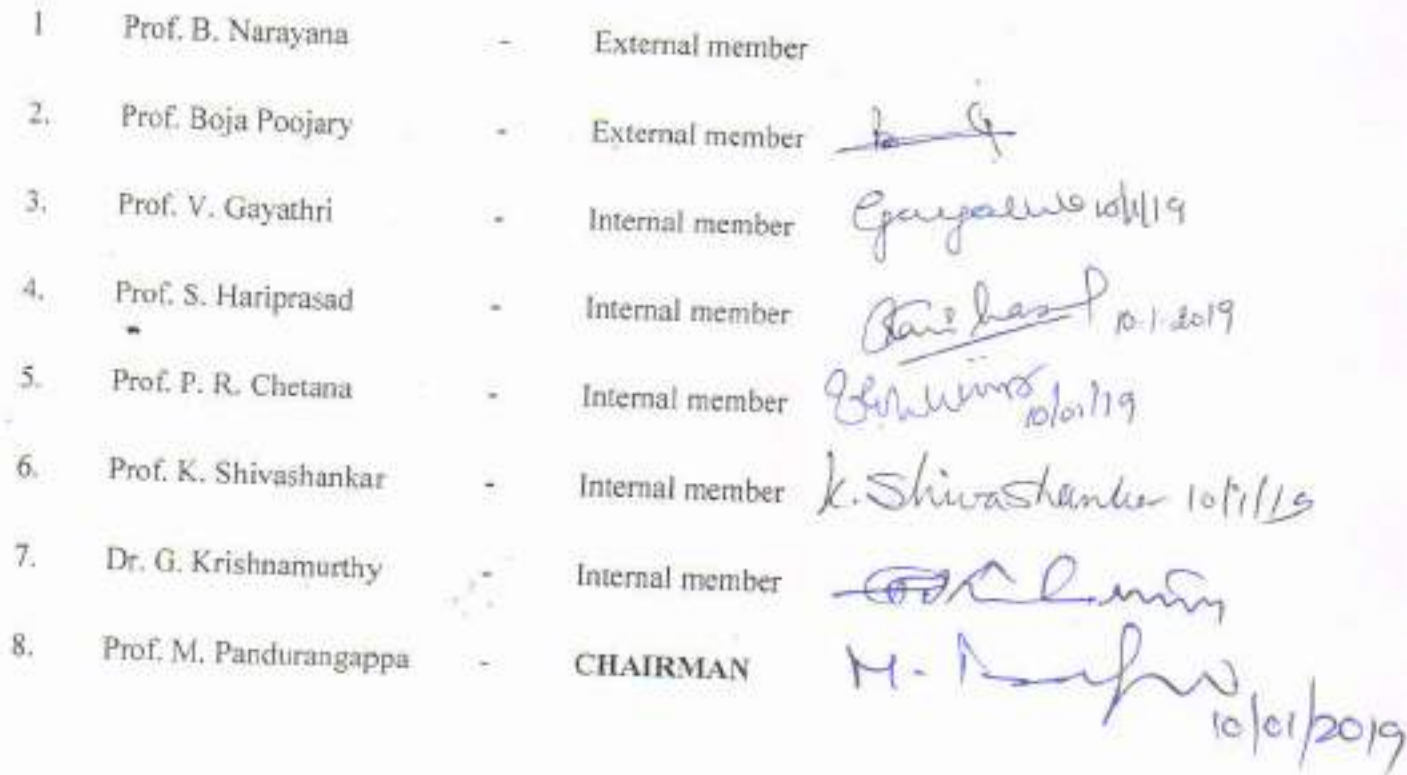 1 Prof. B. Narayana - External member
2. Prof. Boja Poojary - External member
3. Prof. V. Gayathri - Internal member 10/1/19
4. Prof. S. Hariprasad - Internal member 10.1.2019
5. Prof. P. R. Chetana - Internal member 10/01/19
6. Prof. K. Shivashankar - Internal member K. Shivashankar 10/1/19
7. Dr. G. Krishnamurthy - Internal member
8. Prof. M. Pandurangappa - CHAIRMAN M. 10/01/2019